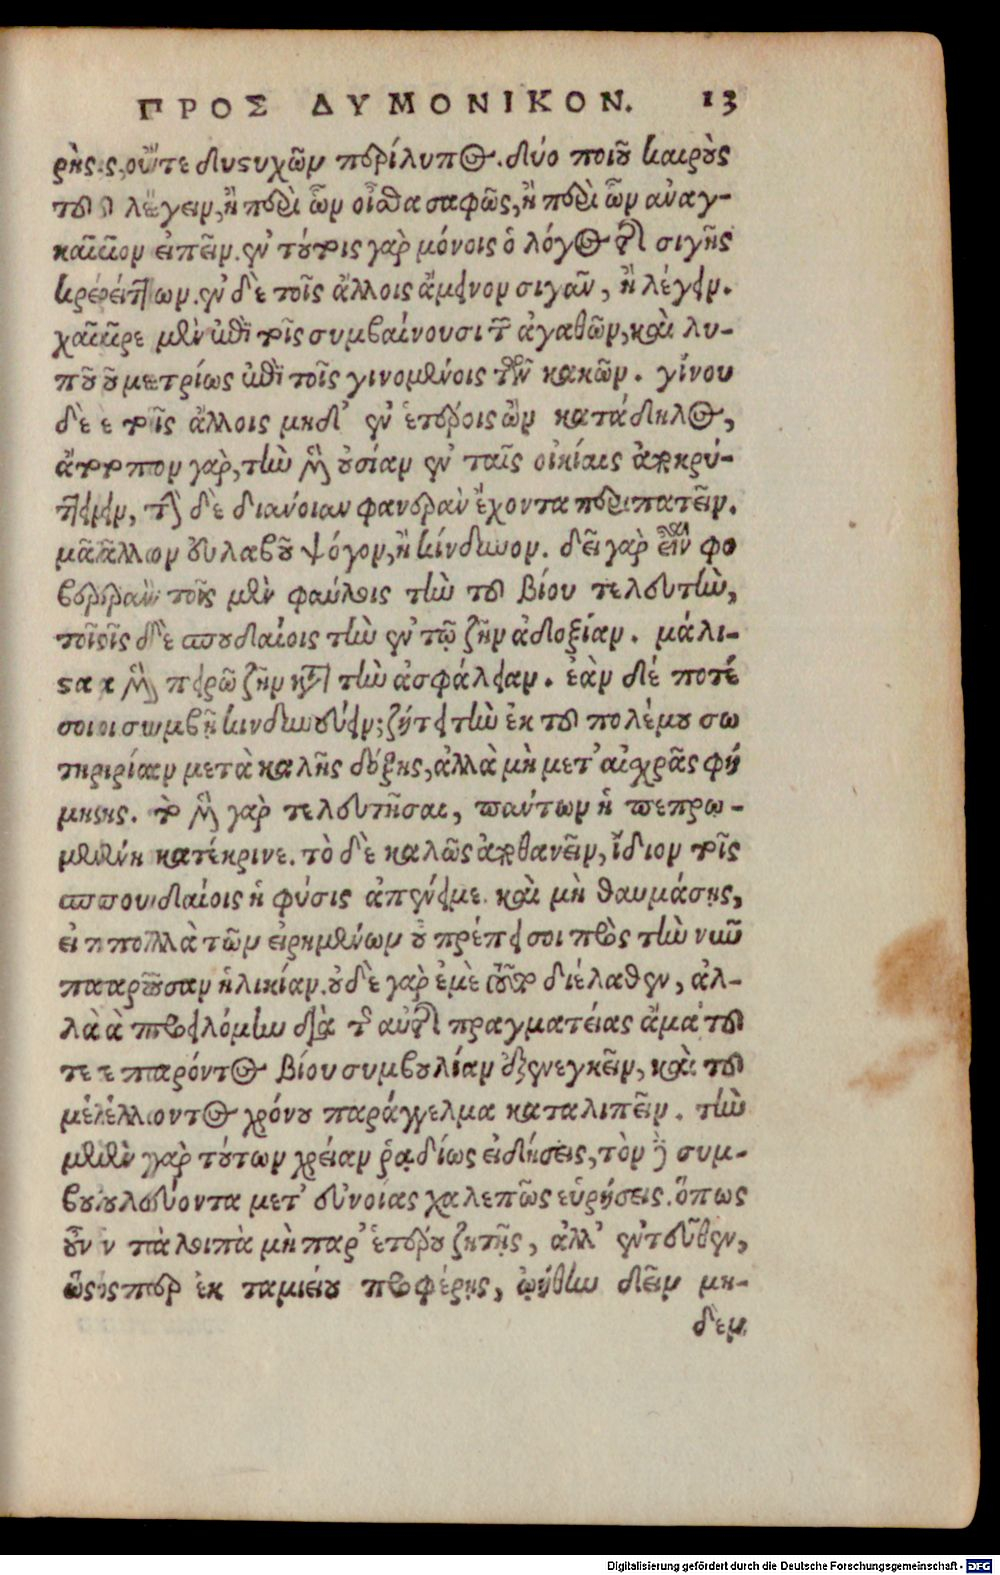 ΠΡΟΣ ΔΥΜΟΝΙΚΟΝ. 13
ρὴς, οὔτε δυστυχῶν περίλυπος. δύο ποιοῦ καιροὺς
τοῦ λέγειν, ἢ περὶ ὧν οἶσθα σαφῶς, ἢ περὶ ὧν ἀναγ-
καῖον εἰπεῖν. ἐν τούτοις γὰρ μόνοις ὁ λόγος τῆς σιγῆς
κρείττων. ἐν δὲ τοῖς ἄλλοις ἄμεινον σιγᾶν, ἢ λέγειν.
χαῖρε μὲν ἐπὶ τοῖς συμβαίνουσι τῶν ἀγαθῶν, καὶ λυ-
ποῦ μετρίως ἐπὶ τοῖς γινομένοις τῶν κακῶν. γίνου
δὲ τοῖς ἄλλοις μηδ' ἐν ἑτέροις ὢν κατάδηλος,
ἄτοπον γὰρ, τὴν μὲν οὐσίαν ἐν ταῖς οἰκίαις ἀποκρύ-
πτειν, τὴν δὲ διάνοιαν φανερὰν ἔχοντα περιπατεῖν.
μᾶλλον εὐλαβοῦ ψόγον, ἢ κίνδυνον. δεῖ γὰρ εἶναι φο
βερὰν τοῖς μὲν φαύλοις τὴν τοῦ βίου τελευτὴν,
τοῖς δὲ σπουδαίοις τὴν ἐν τῷ ζῆν ἀδοξίαν. μάλι-
στα μὲν πειρῶ ζῆν κατὰ τὴν ἀσφάλειαν. ἐὰν δέ ποτέ
σοι συμβῇ κινδυνεύειν; ζήτει τὴν ἐκ τοῦ πολέμου σω
τηρίαν μετὰ καλῆς δόξης, ἀλλὰ μὴ μετ' αἰσχρᾶς φή
μης. τὸ μὲν γὰρ τελευτῆσαι, πάντων ἡ πεπρω-
μένη κατέκρινε. τὸ δὲ καλῶς ἀποθανεῖν, ἴδιον τοῖς
σπουδαίοις ἡ φύσις ἀπένειμε. καὶ μὴ θαυμάσῃς,
εἰ πολλὰ τῶν εἰρημένων οὐ πρέπει σοι πρὸς τὴν νῦν
παροῦσαν ἡλικίαν. οὐδὲ γὰρ ἐμὲ τοῦτο διέλαθεν, ἀλ-
λὰ προειλόμην διὰ τῆς αὐτῆς πραγματείας ἅμα τοῦ
τε παρόντος βίου συμβουλίαν ἐξενεγκεῖν, καὶ τοῦ
μέλλοντος χρόνου παράγγελμα καταλιπεῖν. τὴν
μὲν γὰρ τούτων χρείαν ῥᾳδίως εἰδήσεις, τὸν δὲ συμ-
βουλεύοντα μετ' εὐνοίας χαλεπῶς εὑρήσεις. ὅπως
οὖν τὰ λοιπὰ μὴ παρ' ἑτέρου ζητῇς, ἀλλ' ἐντεῦθεν,
ὥσπερ ἐκ ταμιείου προφέρῃς, ᾠήθην δεῖν μη-
δεν
Digitalisierung gefördert durch die Deutsche Forschungsgemeinschaft - DFG